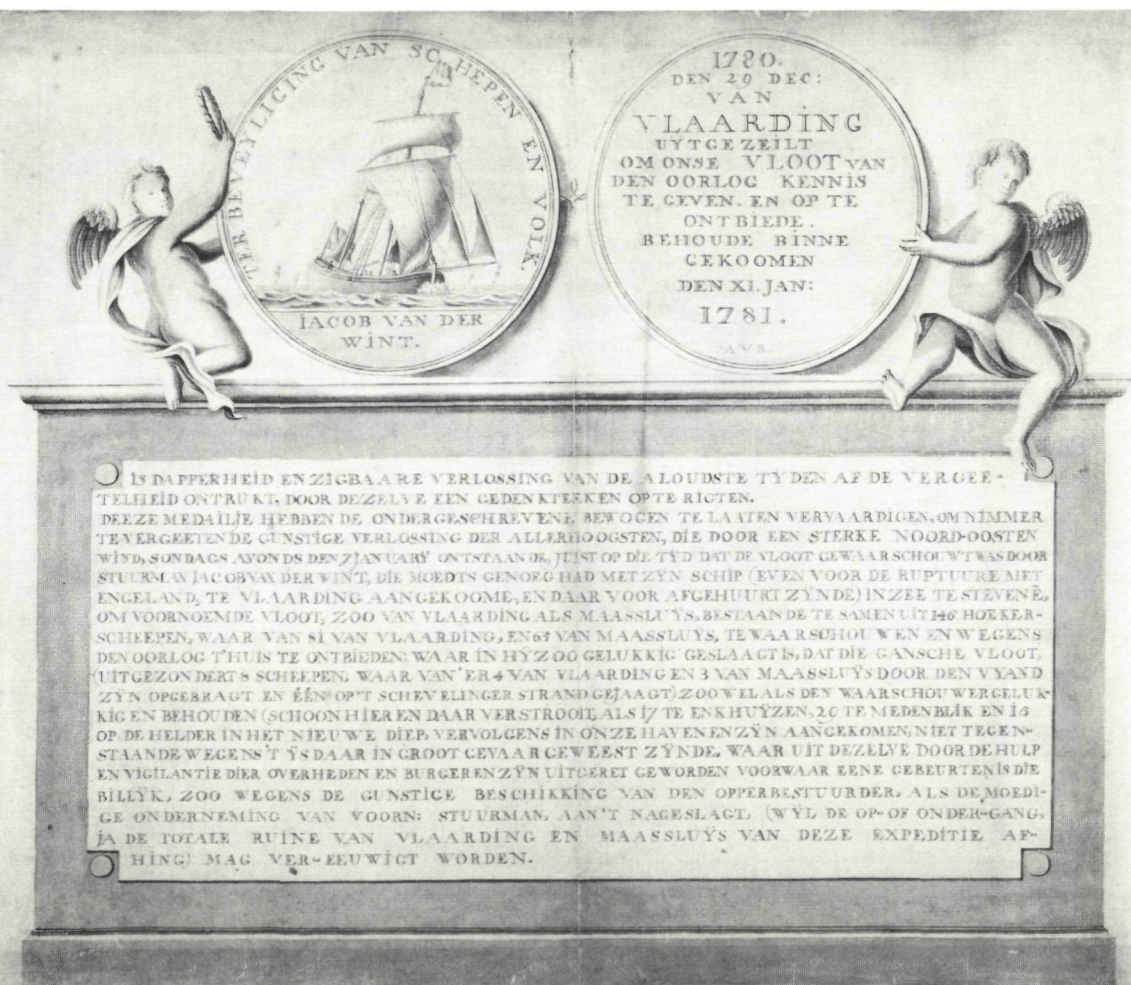 TER BEVEYLIGING VAN SCHEPEN EN VOLK.
IACOB VAN DER
WINT.
1780.
DEN 29 DEC:
VAN
VLAARDING
UYTGEZEILT
OM ONSE VLOOT VAN
DEN OORLOG KENNIS
TE GEVEN. EN OP TE
ONTBIEDE.
BEHOUDE BINNE
GEKOOMEN
DEN XI. JAN:
1781.
A.V.B.
IS DAPPERHEID EN ZIGBAARE VERLOSSING VAN DE ALOUDSTE TYDEN AF DE VERGEE-
TELHEID ONTRUKT. DOOR DEZELVE EEN GEDENKTEEKEN OP TE RIGTEN.
DEEZE MEDAILJE HEBBEN DE ONDERGESCHREVENE BEWOGEN TE LAATEN VERVAARDIGEN, OM NIMMER
TE VERGEETEN DE GUNSTIGE VERLOSSING DER ALLERHOOGSTEN, DIE DOOR EEN STERKE NOORD-OOSTEN
WIND, SONDAGS AVONDS DEN 7 JANUARY ONTSTAANDE, JUIST OP DIE TYD DAT DE VLOOT GEWAARSCHOUWT WAS DOOR
STUURMAN JACOB VAN DER WINT, DIE MOEDTS GENOEG HAD MET ZYN SCHIP (EVEN VOOR DE RUPTUURE MET
ENGELAND, TE VLAARDING AANGEKOOME, EN DAAR VOOR AFGEHUURT ZYNDE) IN ZEE TE STEVENE,
OM VOORNOEMDE VLOOT, ZOO VAN VLAARDING ALS MAASSLUYS, BESTAANDE TE SAMEN UIT 146 HOEKER-
SCHEEPEN, WAAR VAN 81 VAN VLAARDING, EN 65 VAN MAASSLUYS, TE WAARSCHOUWEN EN WEGENS
DEN OORLOG T'HUIS TE ONTBIEDEN: WAAR IN HY ZOO GELUKKIG GESLAAGT IS, DAT DIE GANSCHE VLOOT,
(UITGEZONDERT 8 SCHEEPEN, WAAR VAN 'ER 4 VAN VLAARDING EN 3 VAN MAASSLUYS DOOR DEN VYAND
ZYN OPGEBRAGT EN ÉÉN OP'T SCHEVELINGER STRAND GEJAAGT) ZOO WEL ALS DEN WAARSCHOUWER GELUK-
KIG EN BEHOUDEN (SCHOON HIER EN DAAR VERSTROOIT, ALS 17 TE ENKHUYZEN, 20 TE MEDENBLIK EN 15
OP DE HELDER IN HET NIEUWE DIEP, VERVOLGENS IN ONZE HAVENEN ZYN AANGEKOMEN, NIET TEGEN-
STAANDE WEGENS 'T YS DAAR IN GROOT GEVAAR GEWEEST ZYNDE. WAAR UIT DEZELVE DOOR DE HULP
EN VIGILANTIE DIER OVERHEDEN EN BURGEREN ZYN UITGERET GEWORDEN VOORWAAR EENE GEBEURTENIS DIE
BILLYK, ZOO WEGENS DE GUNSTIGE BESCHIKKING VAN DEN OPPERBESTUURDER, ALS DE MOEDI-
GE ONDERNEMING VAN VOORN: STUURMAN, AAN'T NAGESLAGT, (WYL DE OP- OF ONDER-GANG,
JA DE TOTALE RUINE VAN VLAARDING EN MAASSLUYS VAN DEZE EXPEDITIE AF-
HING) MAG VER-EEUWIGT WORDEN.